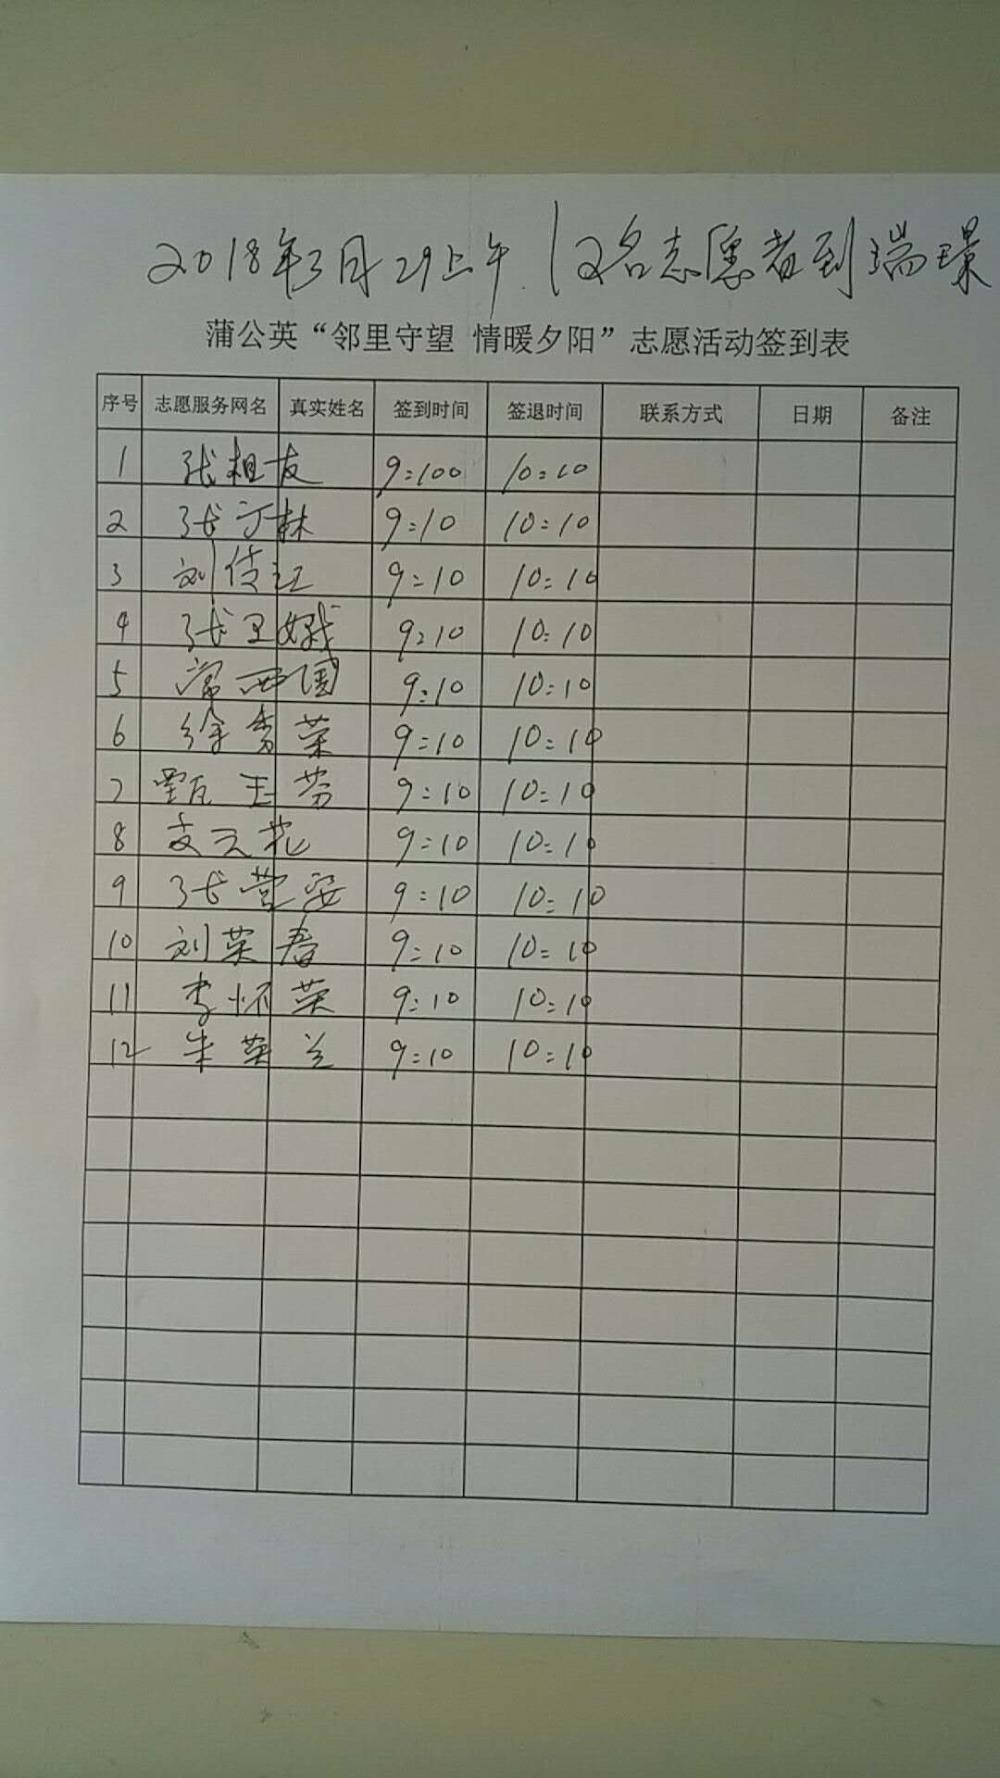 2018年3月29上午.12名志愿者到瑞璟
蒲公英“邻里守望 情暖夕阳”志愿活动签到表
序号 志愿服务网名 真实姓名 签到时间 签退时间 联系方式 日期 备注
1 张相友 9:100 10:10
2 张 林 9:10 10:10
3 刘传江 9:10 10:10
4 张卫娥 9:10 10:10
5 常西国 9:10 10:10
6 徐秀荣 9:10 10:10
7 甄玉芬 9:10 10:10
8 支云花 9:10 10:10
9 张营安 9:10 10:10
10 刘荣春 9:10 10:10
11 李怀英 9:10 10:10
12 朱英兰 9:10 10:10